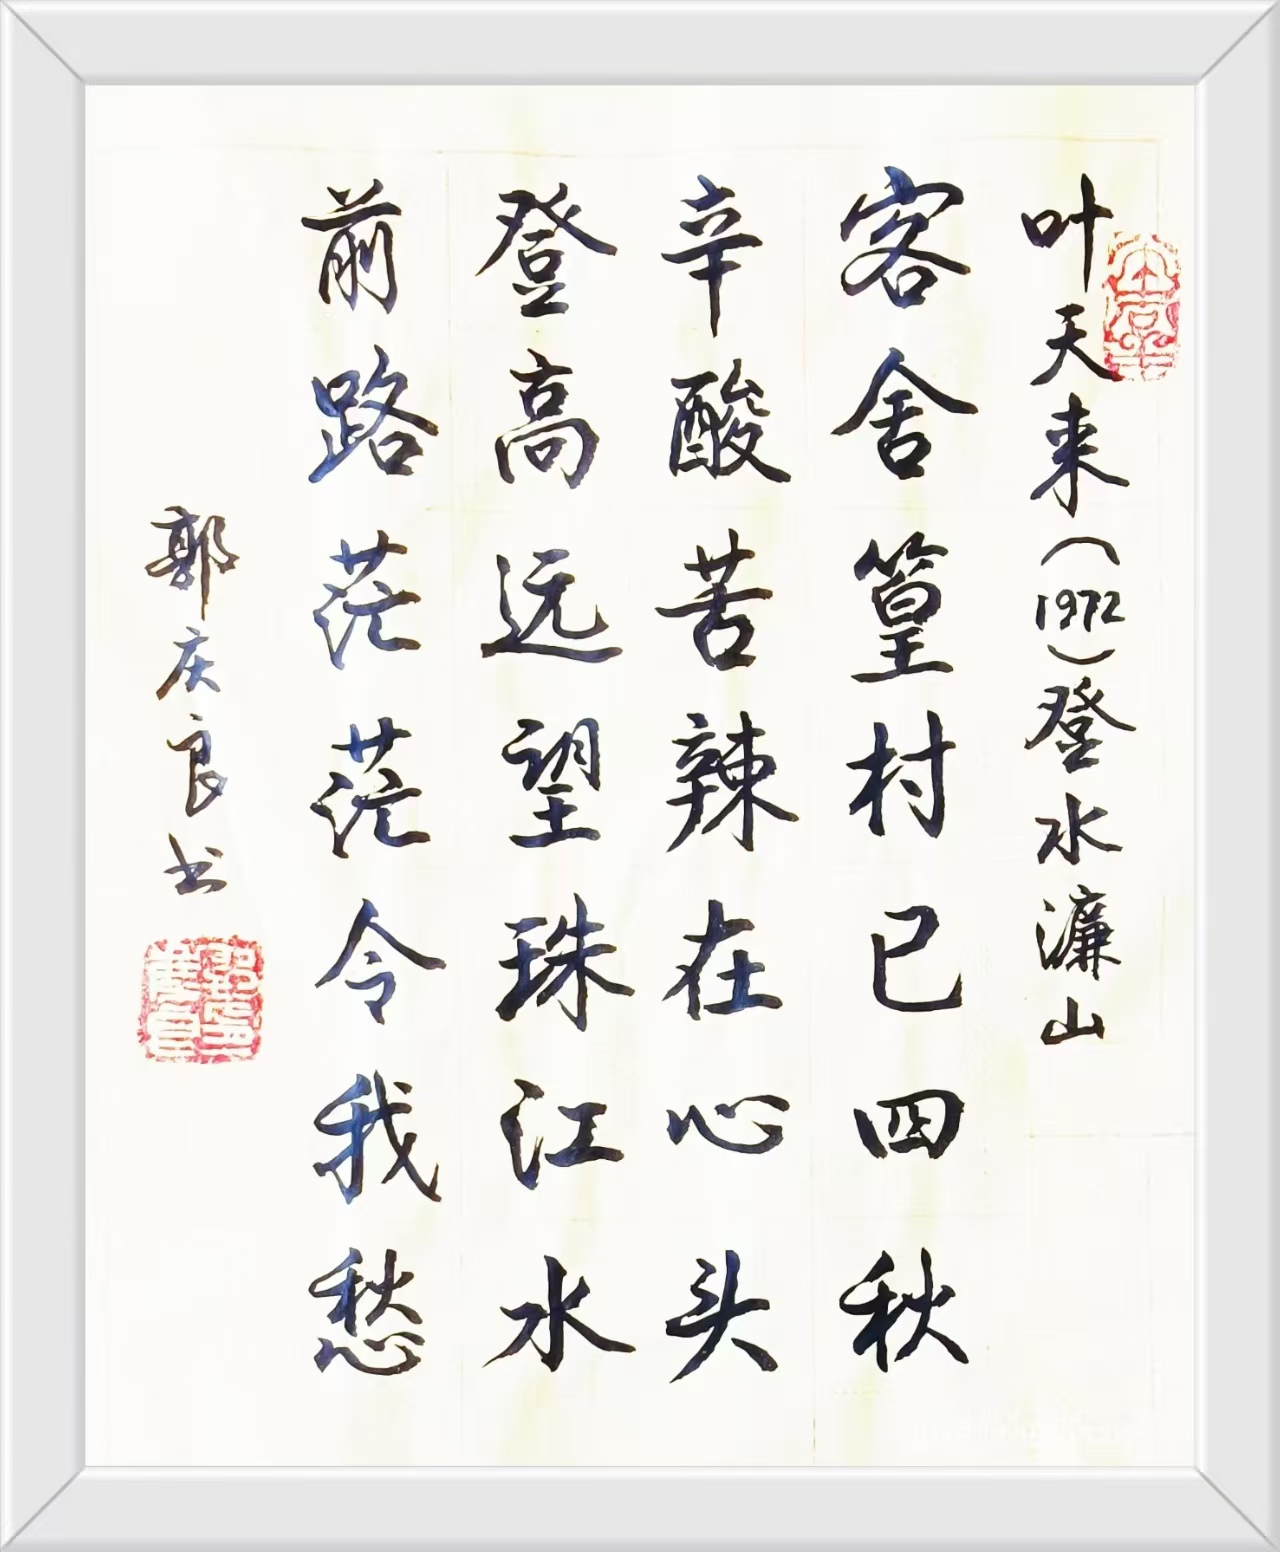 叶天来（1972）登水濂山
客舍篁村已四秋
辛酸苦辣在心头
登高远望珠江水
前路茫茫令我愁
郭庆良书